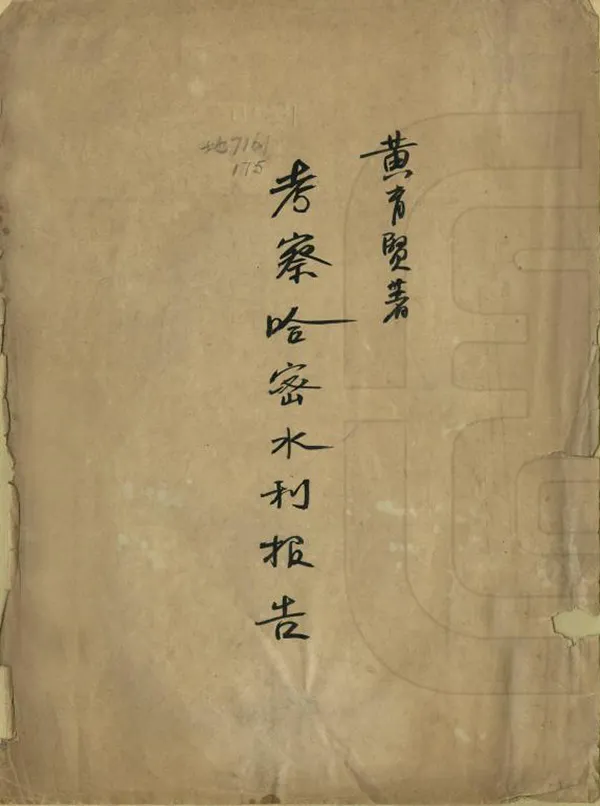 黄育贤著
考察哈密水利报告
地7161
175